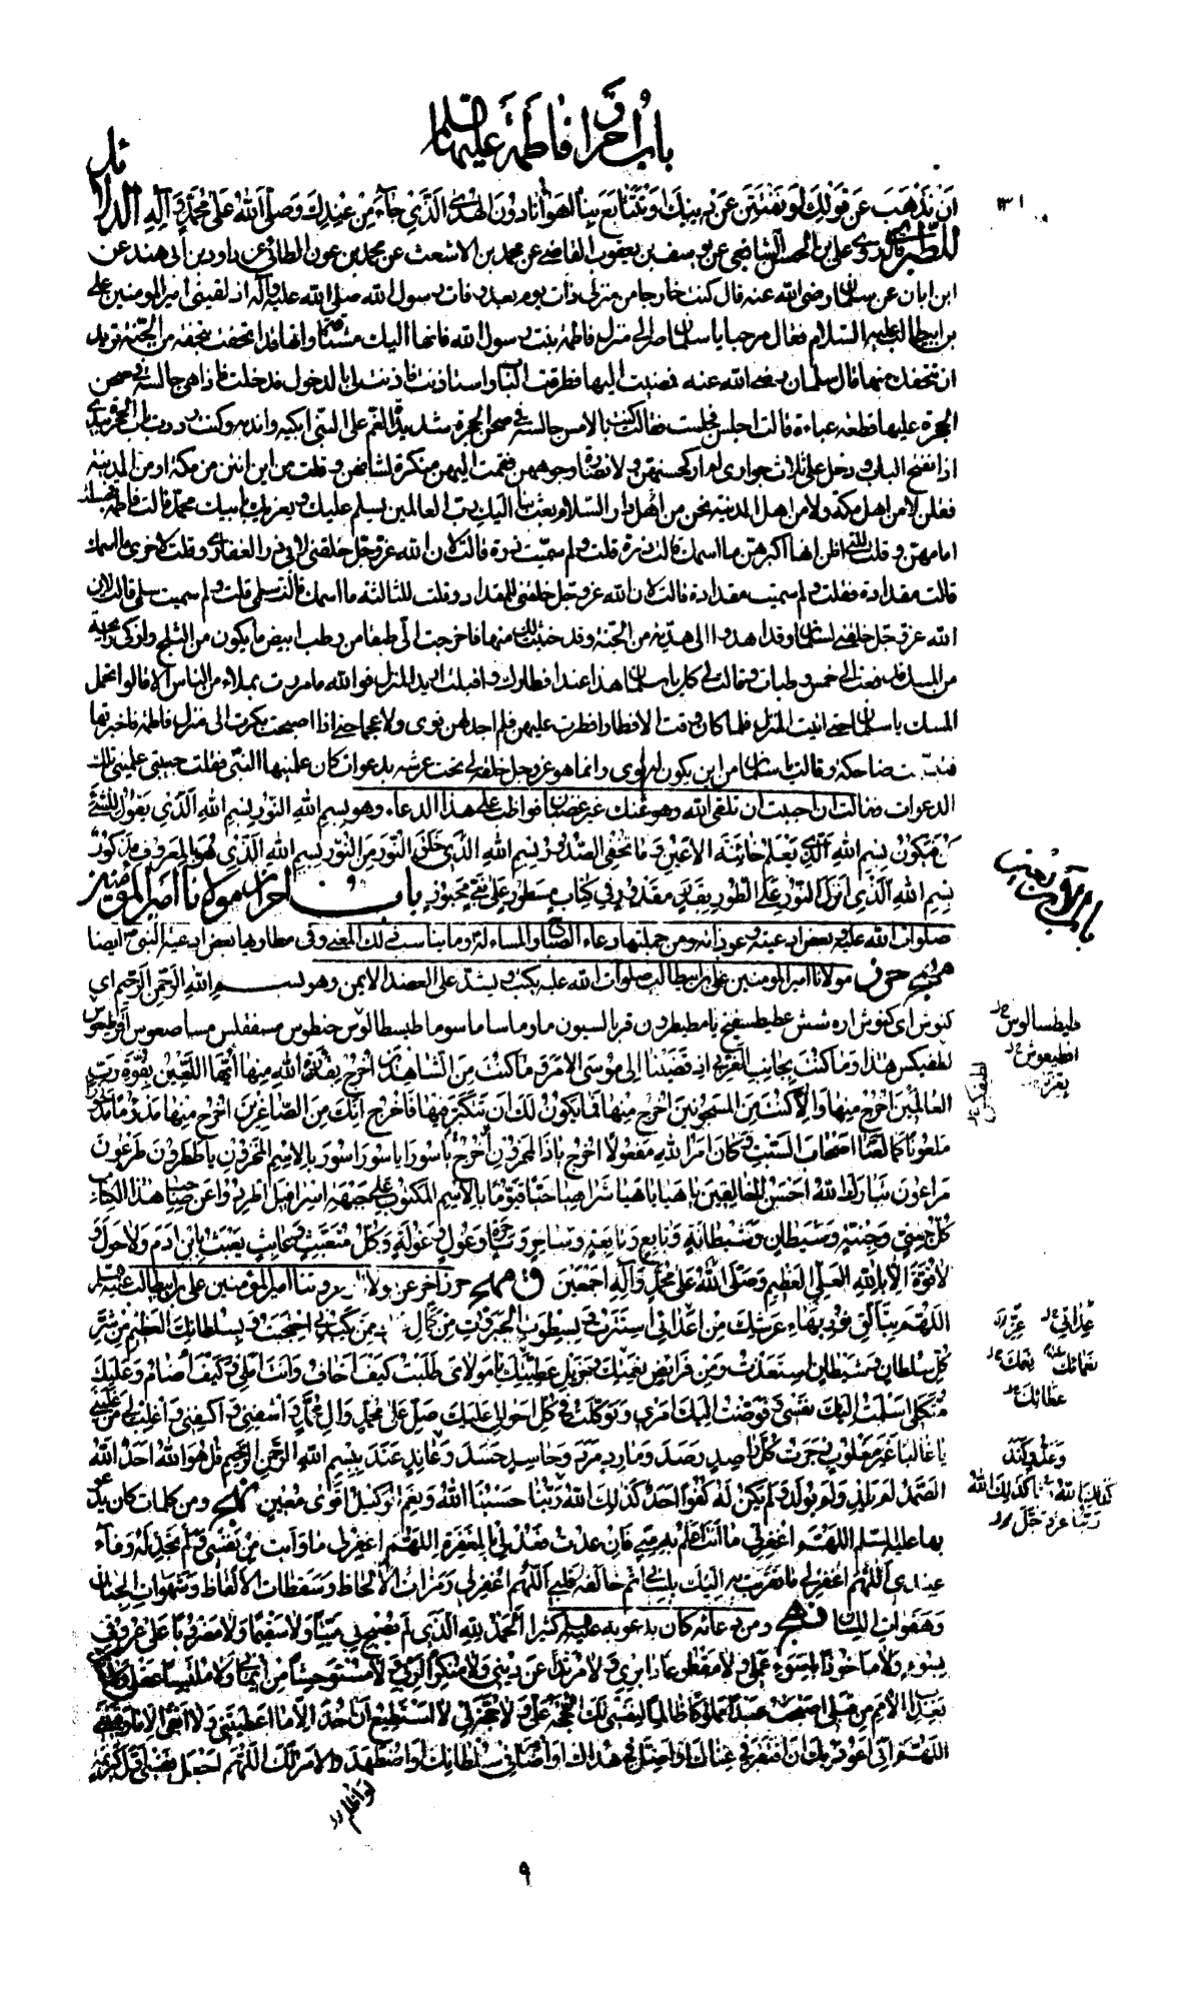 باب احراز فاطمة عليها السلام
ان نذهب عن قولك او نفتتن عن دينك وتتتابع بنا اهواؤنا دون الهدى الذي جاء من عندك وصلى الله على محمد وآله الدلائل
للطبري علي بن الحسن الشافعي عن يوسف بن يعقوب القاضي عن محمد بن الاشعث عن محمد بن عون الطائي عن داود بن أبي هند عن
ابن ابان عن سلمان رضي الله عنه قال كنت خارجا من منزلي ذات يوم بعد وفات رسول الله صلى الله عليه وآله اذ لقيني امير المومنين علي
بن ابيطالب عليه السلام فقال مرحبا يا سلمان صر الى منزل فاطمة بنت رسول الله فانها اليك مشتاقة وانها قد اتحفت بتحفة من الجنة تريد
ان تتحفك منها قال سلمان رضي الله عنه فمضيت اليها فطرقت الباب واستاذنت فاذنت لي بالدخول فدخلت فاذا هي جالسة في صحن
الحجرة عليها قطعة عباءة قالت اجلس فجلست فقالت كنت بالامس جالسة في صحن الحجرة شديدة الغم على النبي ابكيه واندبه وكنت رددت باب الحجرة بيدي
اذا انفتح الباب ودخل علي ثلاث جواري لم ار كحسنهن ولا نضارة وجوههن فقمت اليهن منكرة لشانهن وقلت من اين انتن من مكة او من المدينة
فقلن لا من اهل مكة ولا من اهل المدينة نحن من اهل دار السلام بعث بنا اليك رب العالمين يسلم عليك ويعزيك بابيك محمد قالت فاطمة فجلست
امامهن وقلت للتي اظن انها اكبرهن ما اسمك قالت ذرة قلت ولم سميت ذرة قالت لان الله عز وجل خلقني لابي ذر الغفاري وقلت لاخرى ما اسمك
قالت مقدادة فقلت ولم سميت مقدادة قالت لان الله عز وجل خلقني للمقداد وقلت للثالثة ما اسمك قالت سلمى قلت ولم سميت سلمى قالت لان
الله عز وجل خلقني لسلمان وقد اهدوا الي هدية من الجنة وقد خبئت لك منها فاخرجت الي طبقا من رطب ابيض ما يكون من الثلج وازكى رائحة
من المسك فدفعت الي خمس رطبات وقالت لي كل يا سلمان هذا عند افطارك واقبلت اريد المنزل فوالله ما مررت بملاء من الناس الا قالوا تحمل
المسك يا سلمان حتى اتيت المنزل فلما كان وقت الافطار افطرت عليهن فلم اجد لهن نوى ولا عجما حتى اذا اصبحت بكرت الى منزل فاطمة فاخبرتها
فتبسمت ضاحكة وقالت يا سلمان من اين يكون له نوى وانما هو عز وجل خلقه لي تحت عرشه بدعوات كان علمنيها النبي فقلت حبيبتي علميني تلك
الدعوات فقالت ان احببت ان تلقى الله وهو عنك غير غضبان فواظب على هذا الدعاء وهو بسم الله النور بسم الله الذي يقول للشئ
كن فيكون بسم الله الذي يعلم خائنة الاعين وما تخفي الصدور بسم الله الذي خلق النور من النور بسم الله الذي هو بالمعروف مذكور
بسم الله الذي انزل النور على الطور بقدر مقدور في كتاب مسطور على نبي محبور باب احراز مولانا امير المؤمنين
صلوات الله عليه وبعض ادعيته وعوذاته ومن جملتها دعاء الصباح والمساء له وما يناسب ذلك المعنى وفي مطاويها بعض ادعية النبي ص ايضا
مهج حرز مولانا امير المومنين علي بن ابيطالب صلوات الله عليه يكتب ويشد على العضد الايمن وهو بسم الله الرحمن الرحيم اي
كنوش اي كنوش اره شش عطيطسفيخ يا مطيطرون قريالسيون ما وما ساما سوما طيسطالوس حنطوس مسفقلس مساصعوس اقرطيعوش
لطفيكس هذا وما كنت بجانب الغربي اذ قضينا إلى موسى الامر وما كنت من الشاهدين اخرج بقدرة الله منها ايها اللعين بقوة رب
العالمين اخرج منها والا كنت من المسجونين اخرج منها فما يكون لك ان تتكبر فيها فاخرج انك من الصاغرين اخرج منها مذؤما مدحورا
ملعونا كما لعنا اصحاب السبت وكان امر الله مفعولا اخرج يا ذا المحزون اخرج يا سورا يا سورا سور بالاسم المخزون يا ططرون طرعون
مراعون تبارك الله احسن الخالقين ياهيا ياهيا شراهيا حيا قيوما بالاسم المكتوب على جبهة اسرافيل اطرد وا عن صاحب هذا الكتاب
كل جني وجنية وشيطان وشيطانة وتابع وتابعة وساحر وساحرة وغول وغولة وكل متعبث وعابث يعبث بابن ادم ولا حول و
لا قوة الا بالله العلي العظيم وصلى الله على محمد وآله اجمعين ق مهج حرز آخر عن مولانا امير المؤمنين علي بن ابيطالب عليه السلام
اللهم بتالق نور بهاء عرشك من اعدائي استترت وبسطوة الجبروت من كمال من يكيدني احتجبت وبسلطانك العظيم من شر
كل سلطان وشيطان استعذت ومن فرائض نعمتك وجزيل عطيتك يا مولاي طلبت كيف اخاف وانت املي وكيف اضام وعليك
متكلي اسلمت اليك نفسي وفوضت اليك امري وتوكلت في كل احوالي عليك صل على محمد وال محمد واشفني واكفني واغلب لي من غلبني
يا غالبا غير مغلوب زجرت كل راصد رصد ومارد مرد وحاسد حسد وعاند عند ببسم الله الرحمن الرحيم قل هو الله احد الله
الصمد لم يلد ولم يولد ولم يكن له كفوا احد كذلك الله ربنا حسبنا الله ونعم الوكيل اقوى معين نهج ومن كلمات كان يدعو
بها عليه السلم اللهم اغفر لي ما انت اعلم به مني فان عدت فعد لي بالمغفرة اللهم اغفر لي ما وايت من نفسي ولم تجد له وفاء
عندي اللهم اغفر لي ما تقربت به اليك بلساني ثم خالفه قلبي اللهم اغفر لي رمزات الالحاظ وسقطات الالفاظ وشهوات الجنان
وهفوات اللسان نهج ومن دعائه كان يدعو به عليه السلم كثيرا الحمد لله الذي لم يصبح بي ميتا ولا سقيما ولا مضروبا على عروقي
بسوء ولا ماخوذا باسوء عملي ولا مقطوعا دابري ولا مرتدا عن ديني ولا منكرا لربي ولا مستوحشا من ايماني ولا ملتبسا عقلي ولا معذبا
بعذاب الامم من قبلي اصبحت عبدا مملوكا ظالما لنفسي لك الحجة علي ولا حجة لي لا استطيع ان اخذ الا ما اعطيتني ولا اتقي الا ما وقيتني
اللهم اني اعوذ بك ان افتقر في غناك او اضل في هداك او اضام في سلطانك او اضطهد والامر لك اللهم اجعل نفسي اول كريمة
طيطسالوس
اقطيعوش
لطيفكس
عزك
نعمائك نعمك
عطائك
كذلك الله
٩